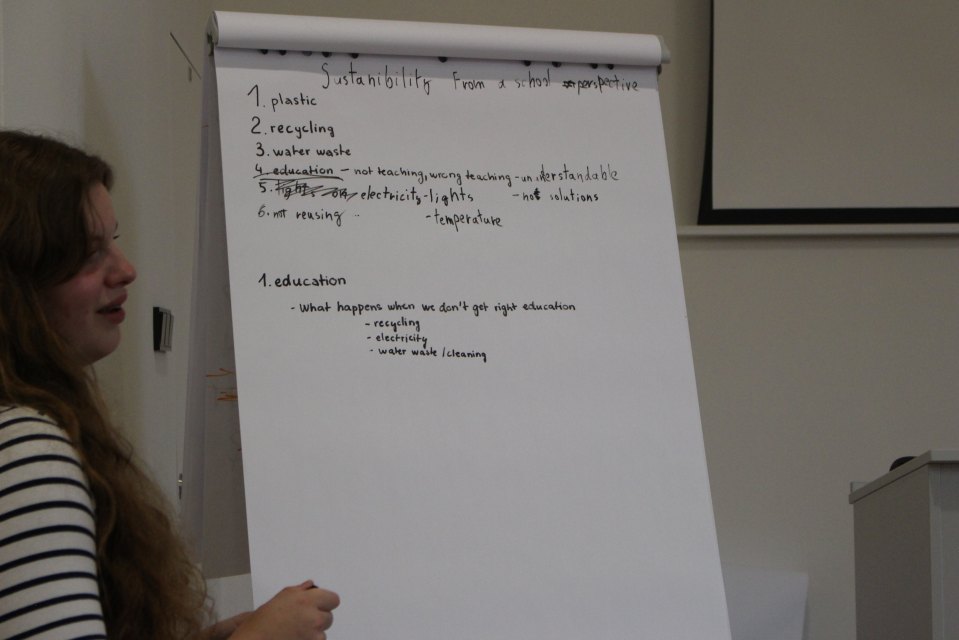 Sustanibility From a school perspective
1. plastic
2. recycling
3. water waste
4. education - not teaching, wrong teaching - un understandable
5. lights on electricity - lights - not solutions
6. not reusing - temperature
1. education
- What happens when we don't get right education
- recycling
- electricity
- water waste / cleaning